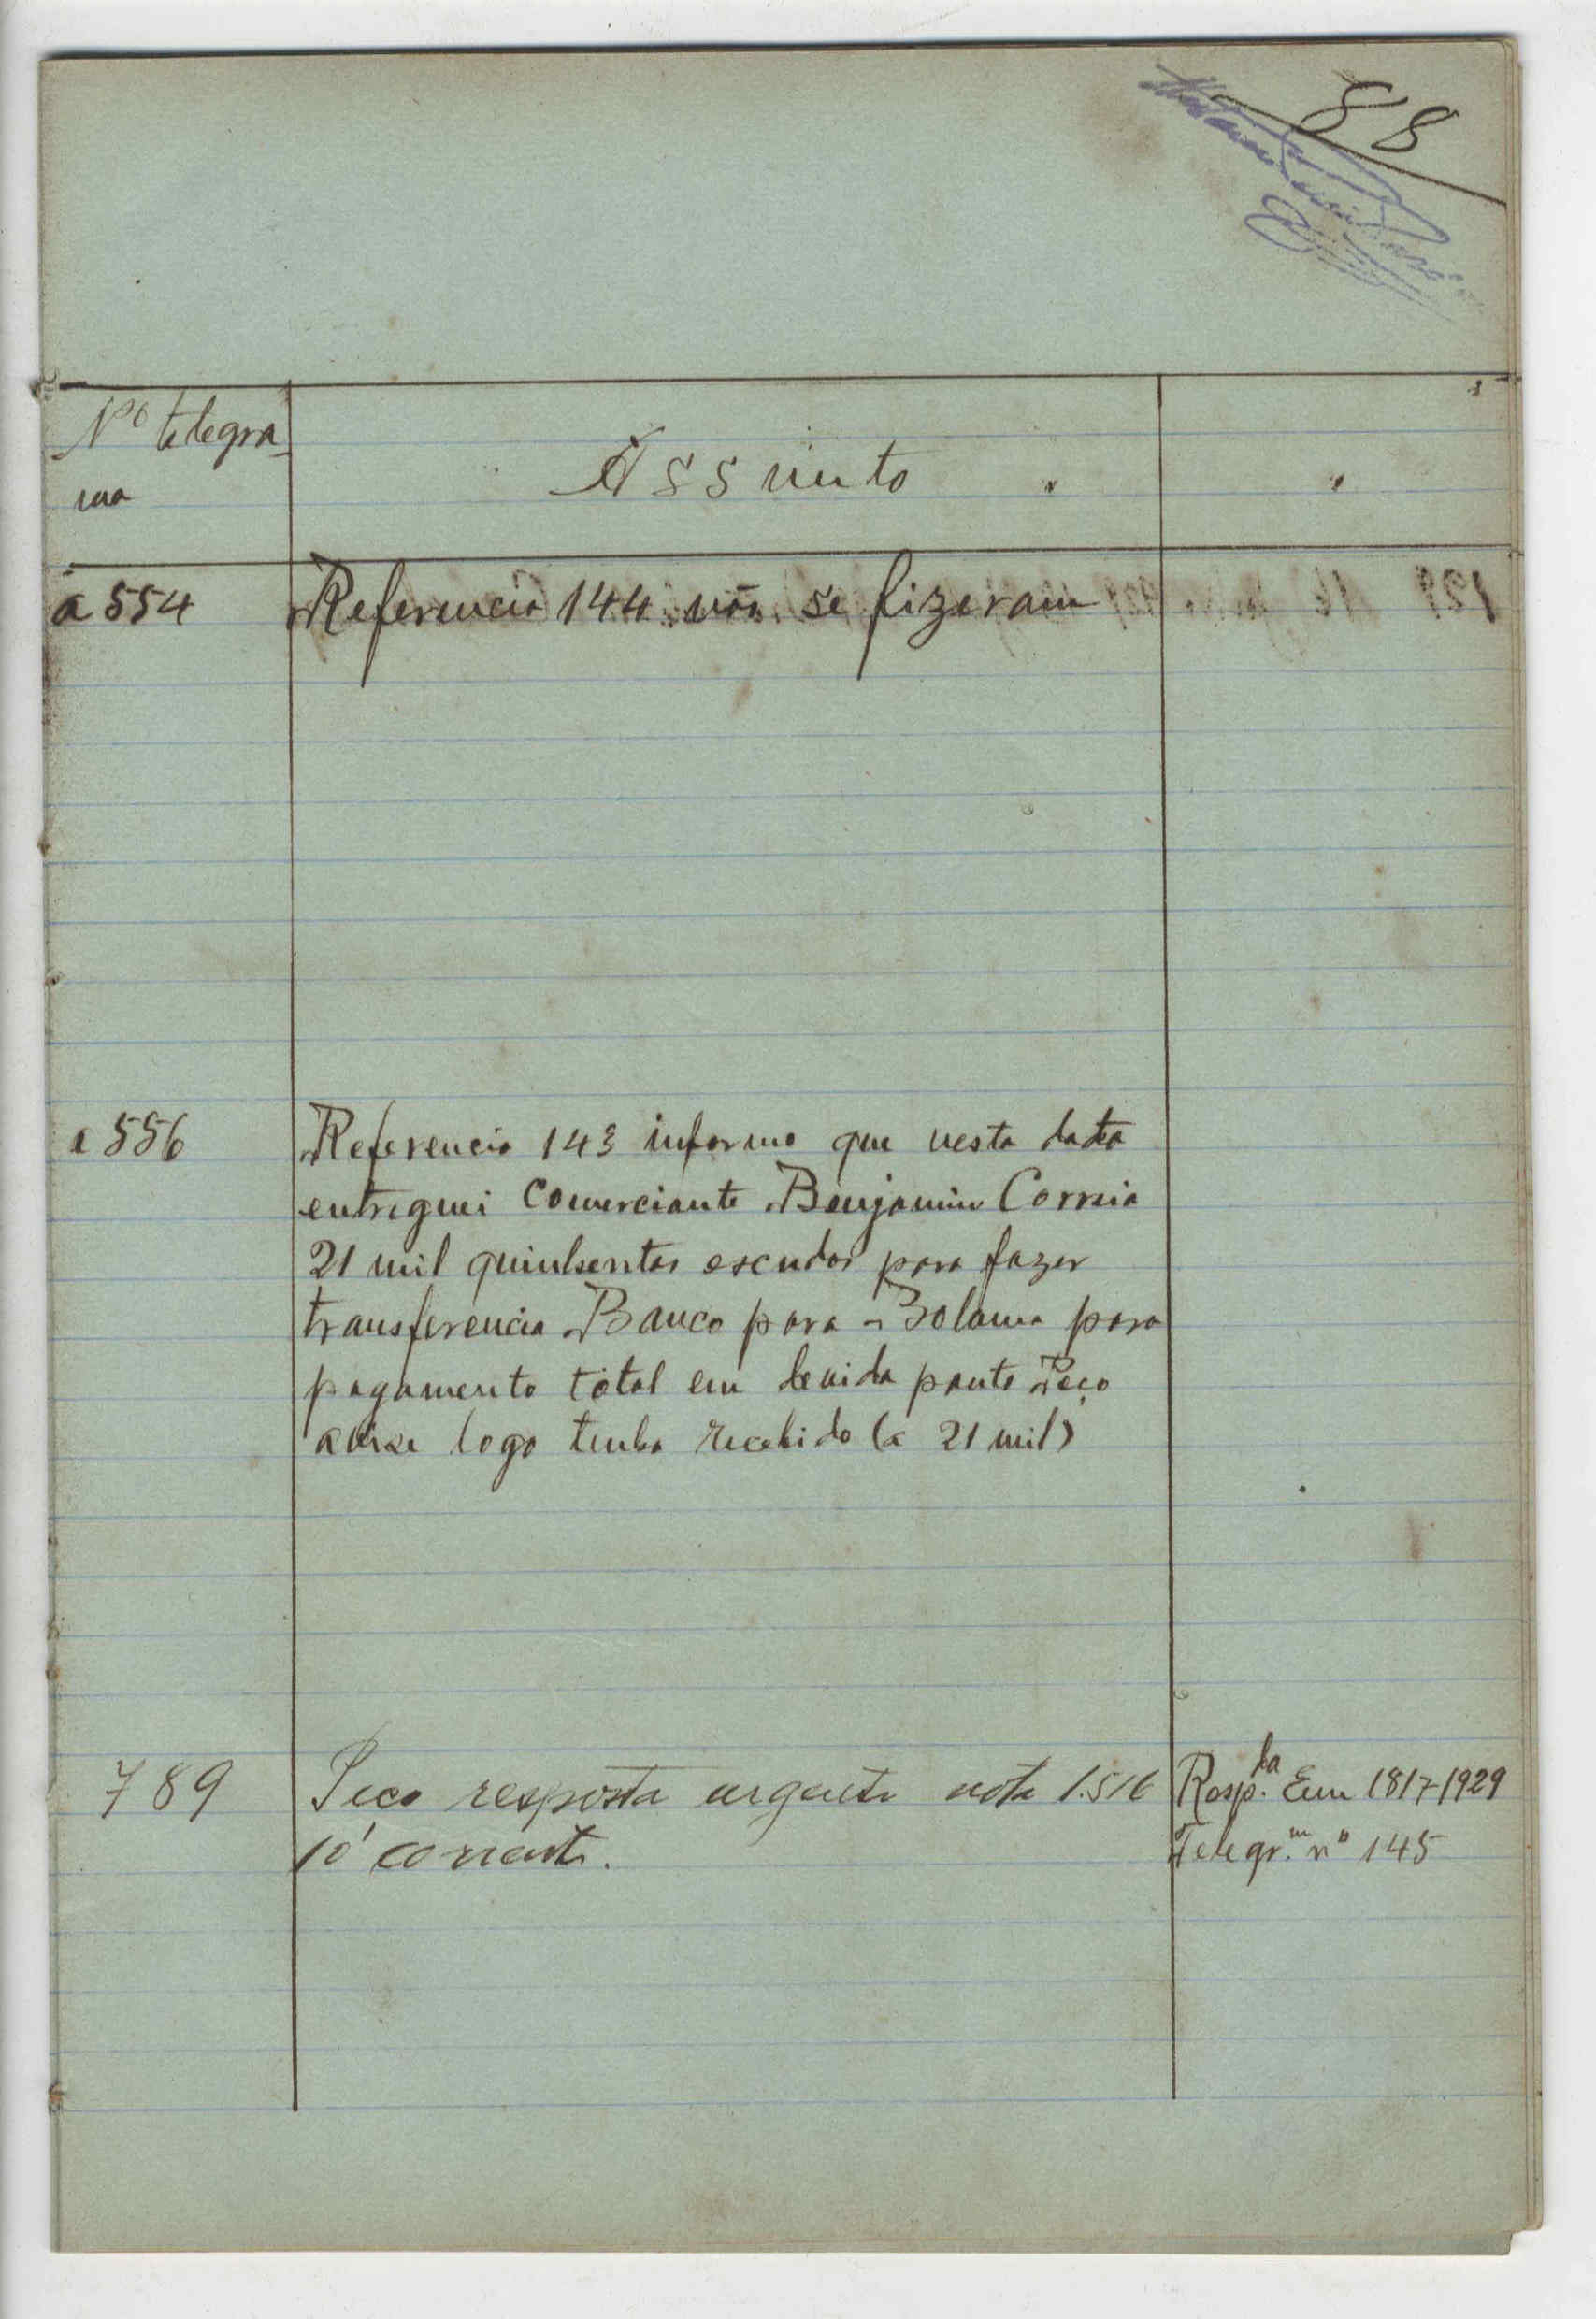 88
Nº telegra-
ma
Assunto
a 554 Referencia 144 não se fizeram
a 556 Referencia 143 informo que nesta data
entreguei comerciante Benjamin Correia
21 mil quinhentos escudos para fazer
transferencia Banco para Bolama para
pagamento total em devida ponte Peço
avise logo tenha recebido (a 21 mil)
789 Peço resposta urgente nota 1.516
10 corrente.
Resp.da Em 18/7/1929
Telegr.m nº 145